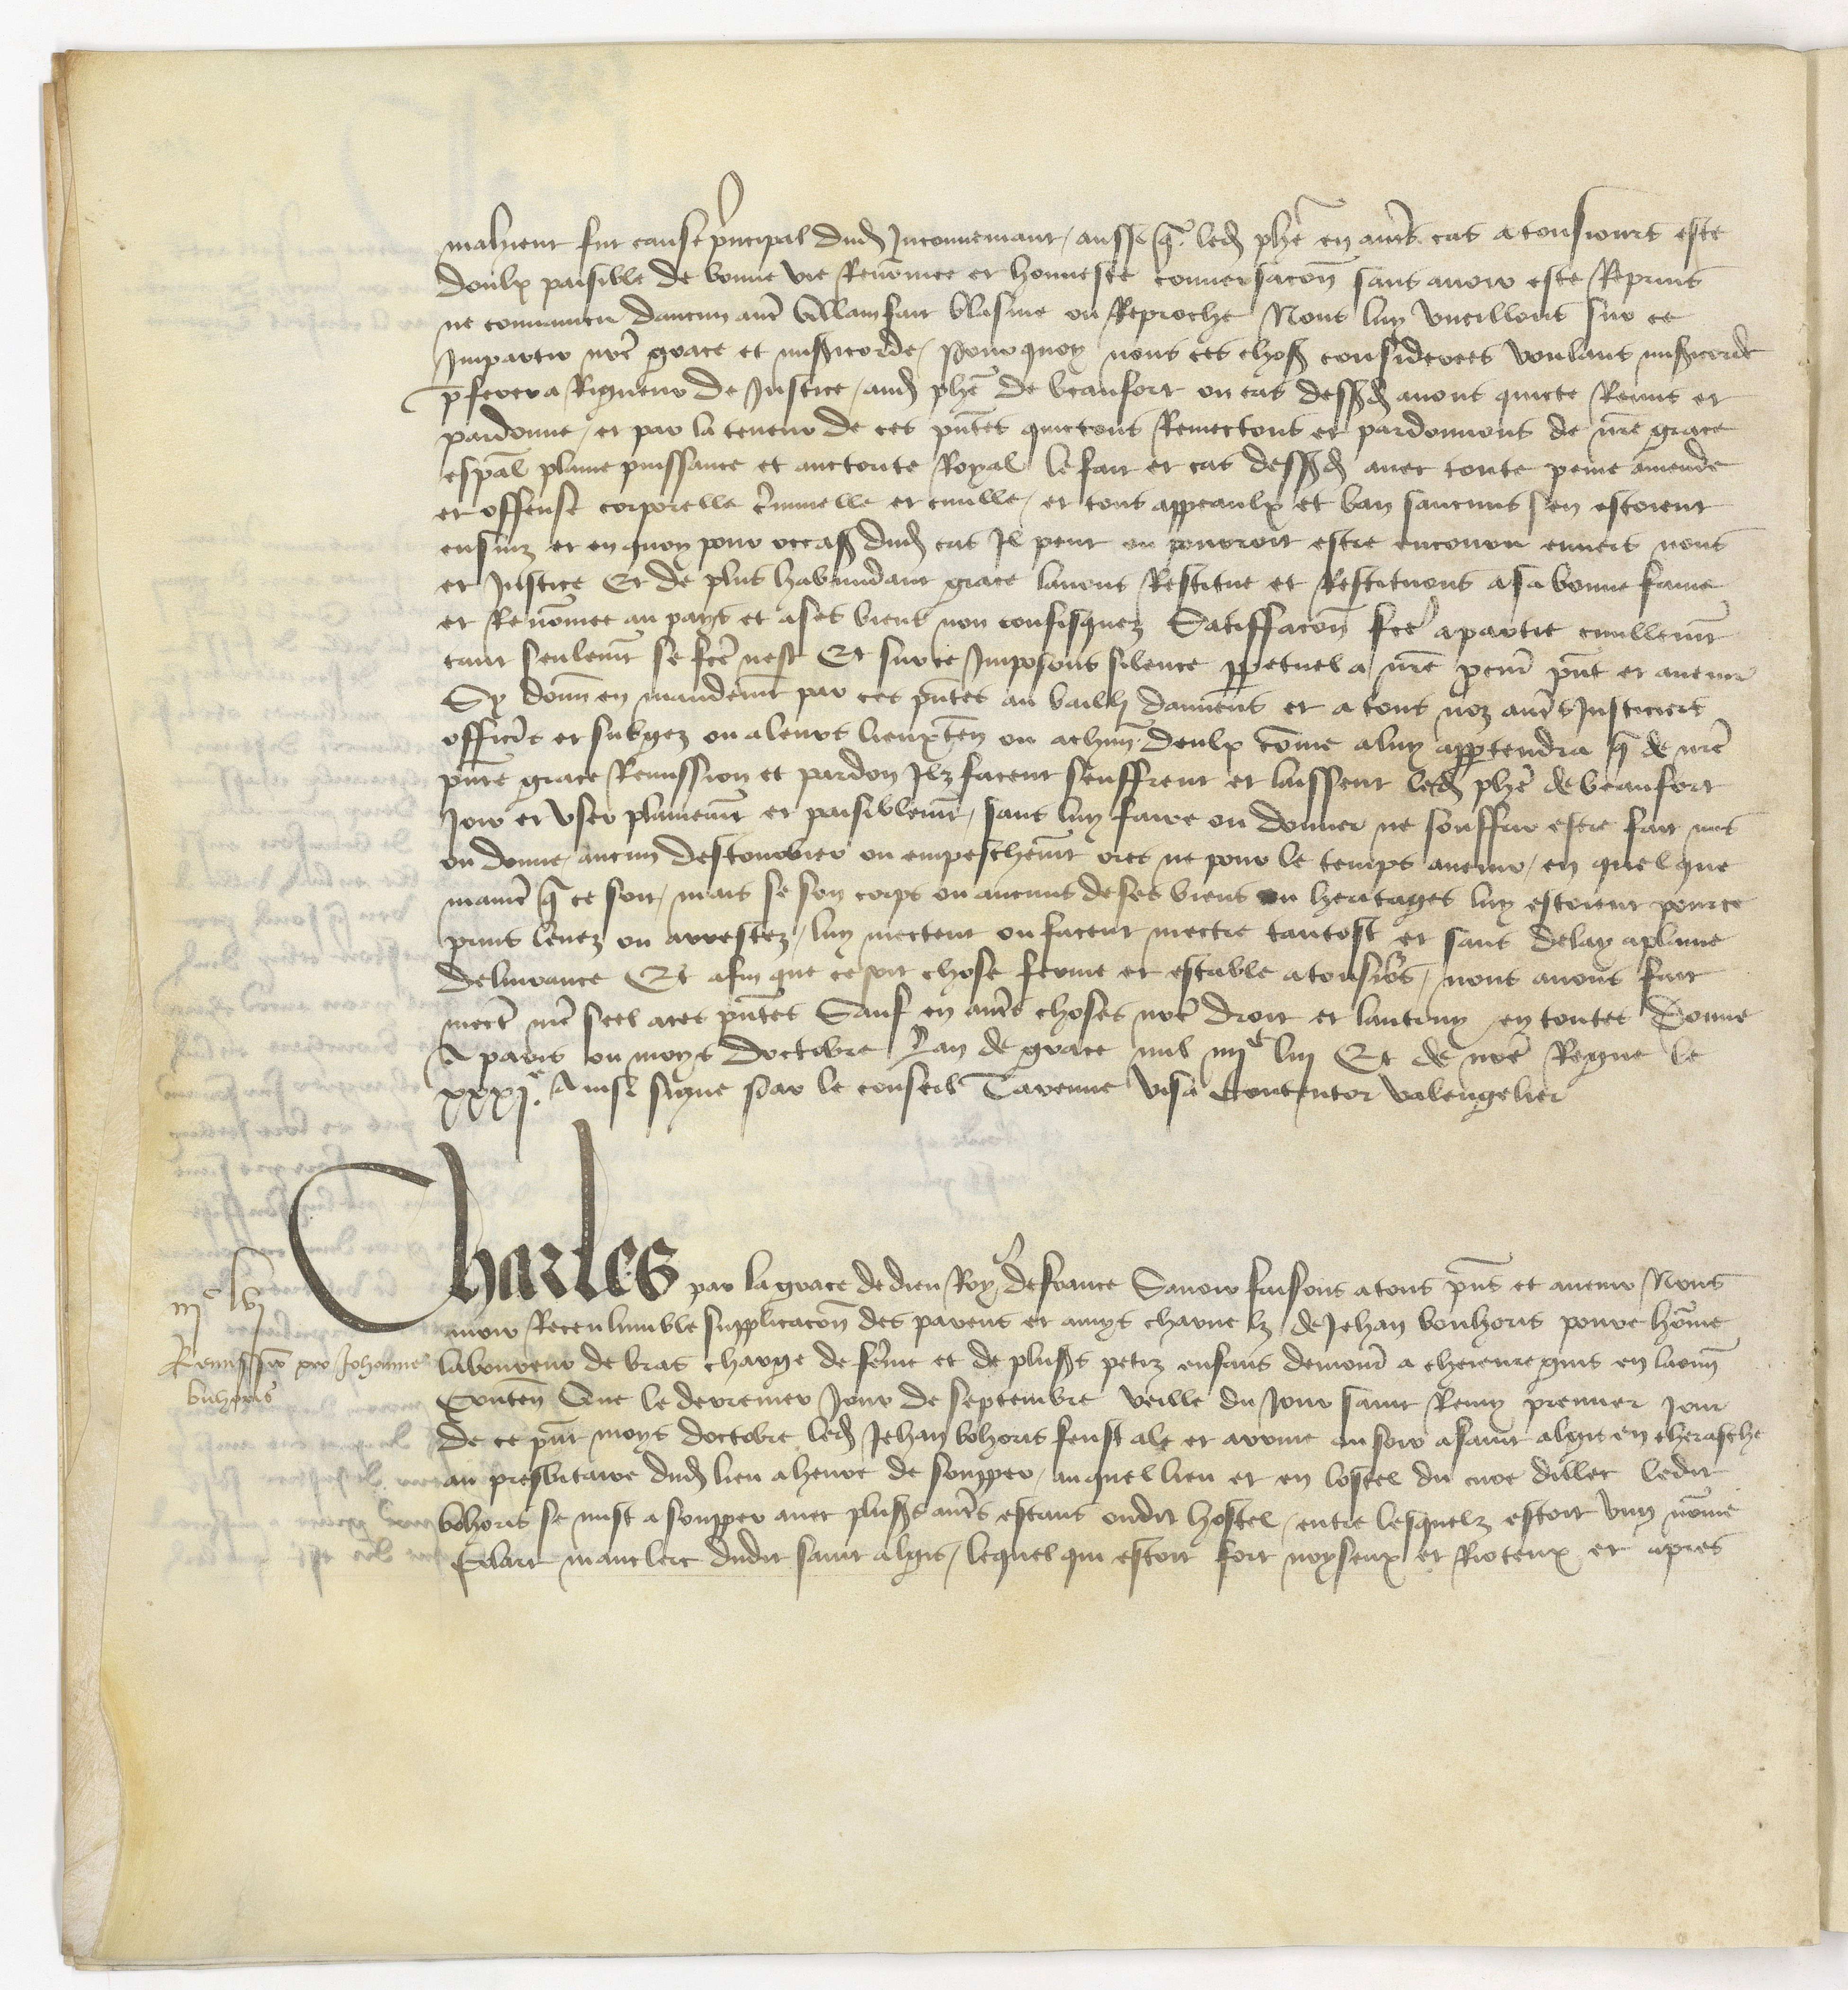 malment fut cause pncipal dud Inconvenant / ausse q led phe en autres cas a tousiours este
doulx paisible de bonne vie Renommee et honneste conversacon sans avoir este Reprins
ne convaincu daucun autre villain fait blasme ou Reproche Nous luy vueillons sur ce
Impartir nre grace et misericorde / Pourquoy nous ces choses considerees voulans misericorde
pferer a Rigueur de Justice / aud phe de beaufort ou cas dessusd avons quicte Remis et
pardonne / et par la teneur de ces pntes quictons Remectons et pardonnons de nre grace
espal plaine puissance et auctorite Royal le fait et cas dessusd avec toute peine amende
et offense corporelle criminelle et civille / et tous appeaulx et ban saucuns sen estoient
ensuiz et en quoy pour occasion dud cas Il peut ou pourroit estre encouru envers nous
et Justice Et de plus habundant grace lavons Restitue et Restituons a sa bonne fame
et Renommee au pays et a ses biens non confisquez Satiffacon fce a partie civillemt
tant seulemt se fce nest Et sur ce Imposons silence ppetuel a nre pcur pnt et avenir
Sy donn en mandemt par ces pntes au bailli damiens et a tous noz autres Justiciers
officiers et subgez ou a leurs lieuxten ou a chun deulx comme a luy appartendra q de nre
pnte grace Remission et pardon Ilz facent seuffrent et laissent led phe de beaufort
Joir et user plainemt et paisiblemt / sans luy faire ou donner ne souffrir estre fait mis
ou donne / aucun destourbier ou empeschemt ores ne pour le temps avenir / en quelque
maniere q ce soit / mais se son corps ou aucuns de ses biens ou heritages luy estoient pource
prins levez ou arrestez / luy mectent ou facent mectre tantost et sans delay a plaine
delivrance Et afin que ce soit chose ferme et estable a tousiors / nous avons fait
mectre nre seel a ces pntes Sauf en autres choses nre droit et lautruy en toutes Donne
A paris ou moys doctobre Lan de grace mil iiijc liij Et de nre Regne le
xxxije Ainsi signe Par le conseil Tavenne visa Contentor valengelier
Charles par la grace de dieu Roy de france Savoir faisons a tous pns et avenir Nous
avoir Receu lumble supplicacon des parens et amys charnelz de Jehan bouhoris povre homme
iijc lvj
Remissio pro Johanne
buhoris
laboureur de bras charge de feme et de plusrs petiz enfans demour a en laonn
Conten Que le derrenier Jour de septembre veille du Jour saint Remy premier Jour
de ce pnt moys doctobre led Jehan bohoris feust ale et arrive au soir a saint algis en therasche
au presbitaire dud lieu a heure de soupper / auquel lieu et en lostel du cure dillec ledit
bohoris se mist a soupper avec plusrs autres estans oudit hostel / entre lesquelz estoit ung nomme
Colart mauclerc dudit saint algis / lequel qui estoit fort noyseux et Rioteux et apres